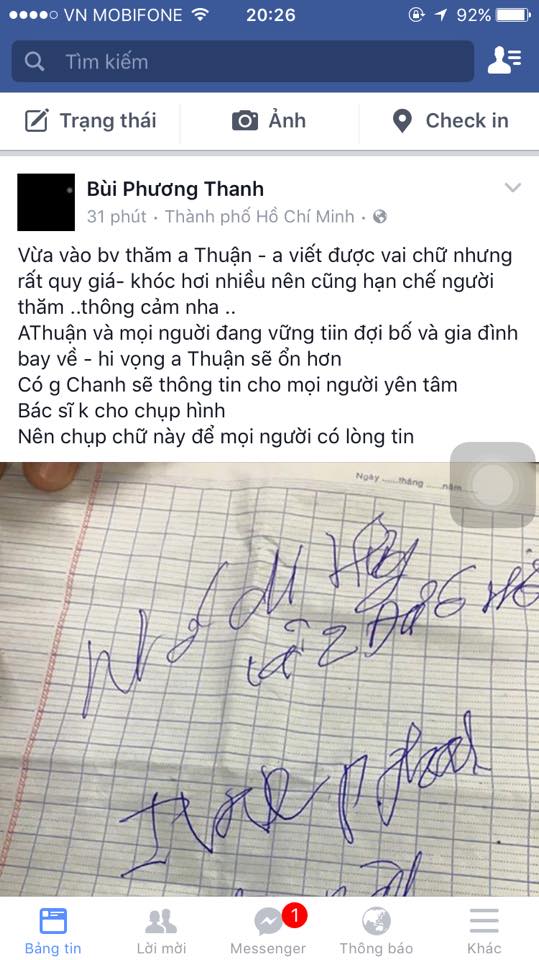 VN MOBIFONE 20:26 92%
Tìm kiếm
Trạng thái Ảnh Check in
Bùi Phương Thanh
31 phút · Thành phố Hồ Chí Minh ·
Vừa vào bv thăm a Thuận - a viết được vai chữ nhưng
rất quy giá- khóc hơi nhiều nên cũng hạn chế người
thăm ..thông cảm nha ..
AThuận và mọi nguời đang vững tiin đợi bố và gia đình
bay về - hi vọng a Thuận sẽ ổn hơn
Có g Chanh sẽ thông tin cho mọi người yên tâm
Bác sĩ k cho chụp hình
Nên chụp chữ này để mọi người có lòng tin
Ngày ......tháng ......năm......
1
Bảng tin Lời mời Messenger Thông báo Khác